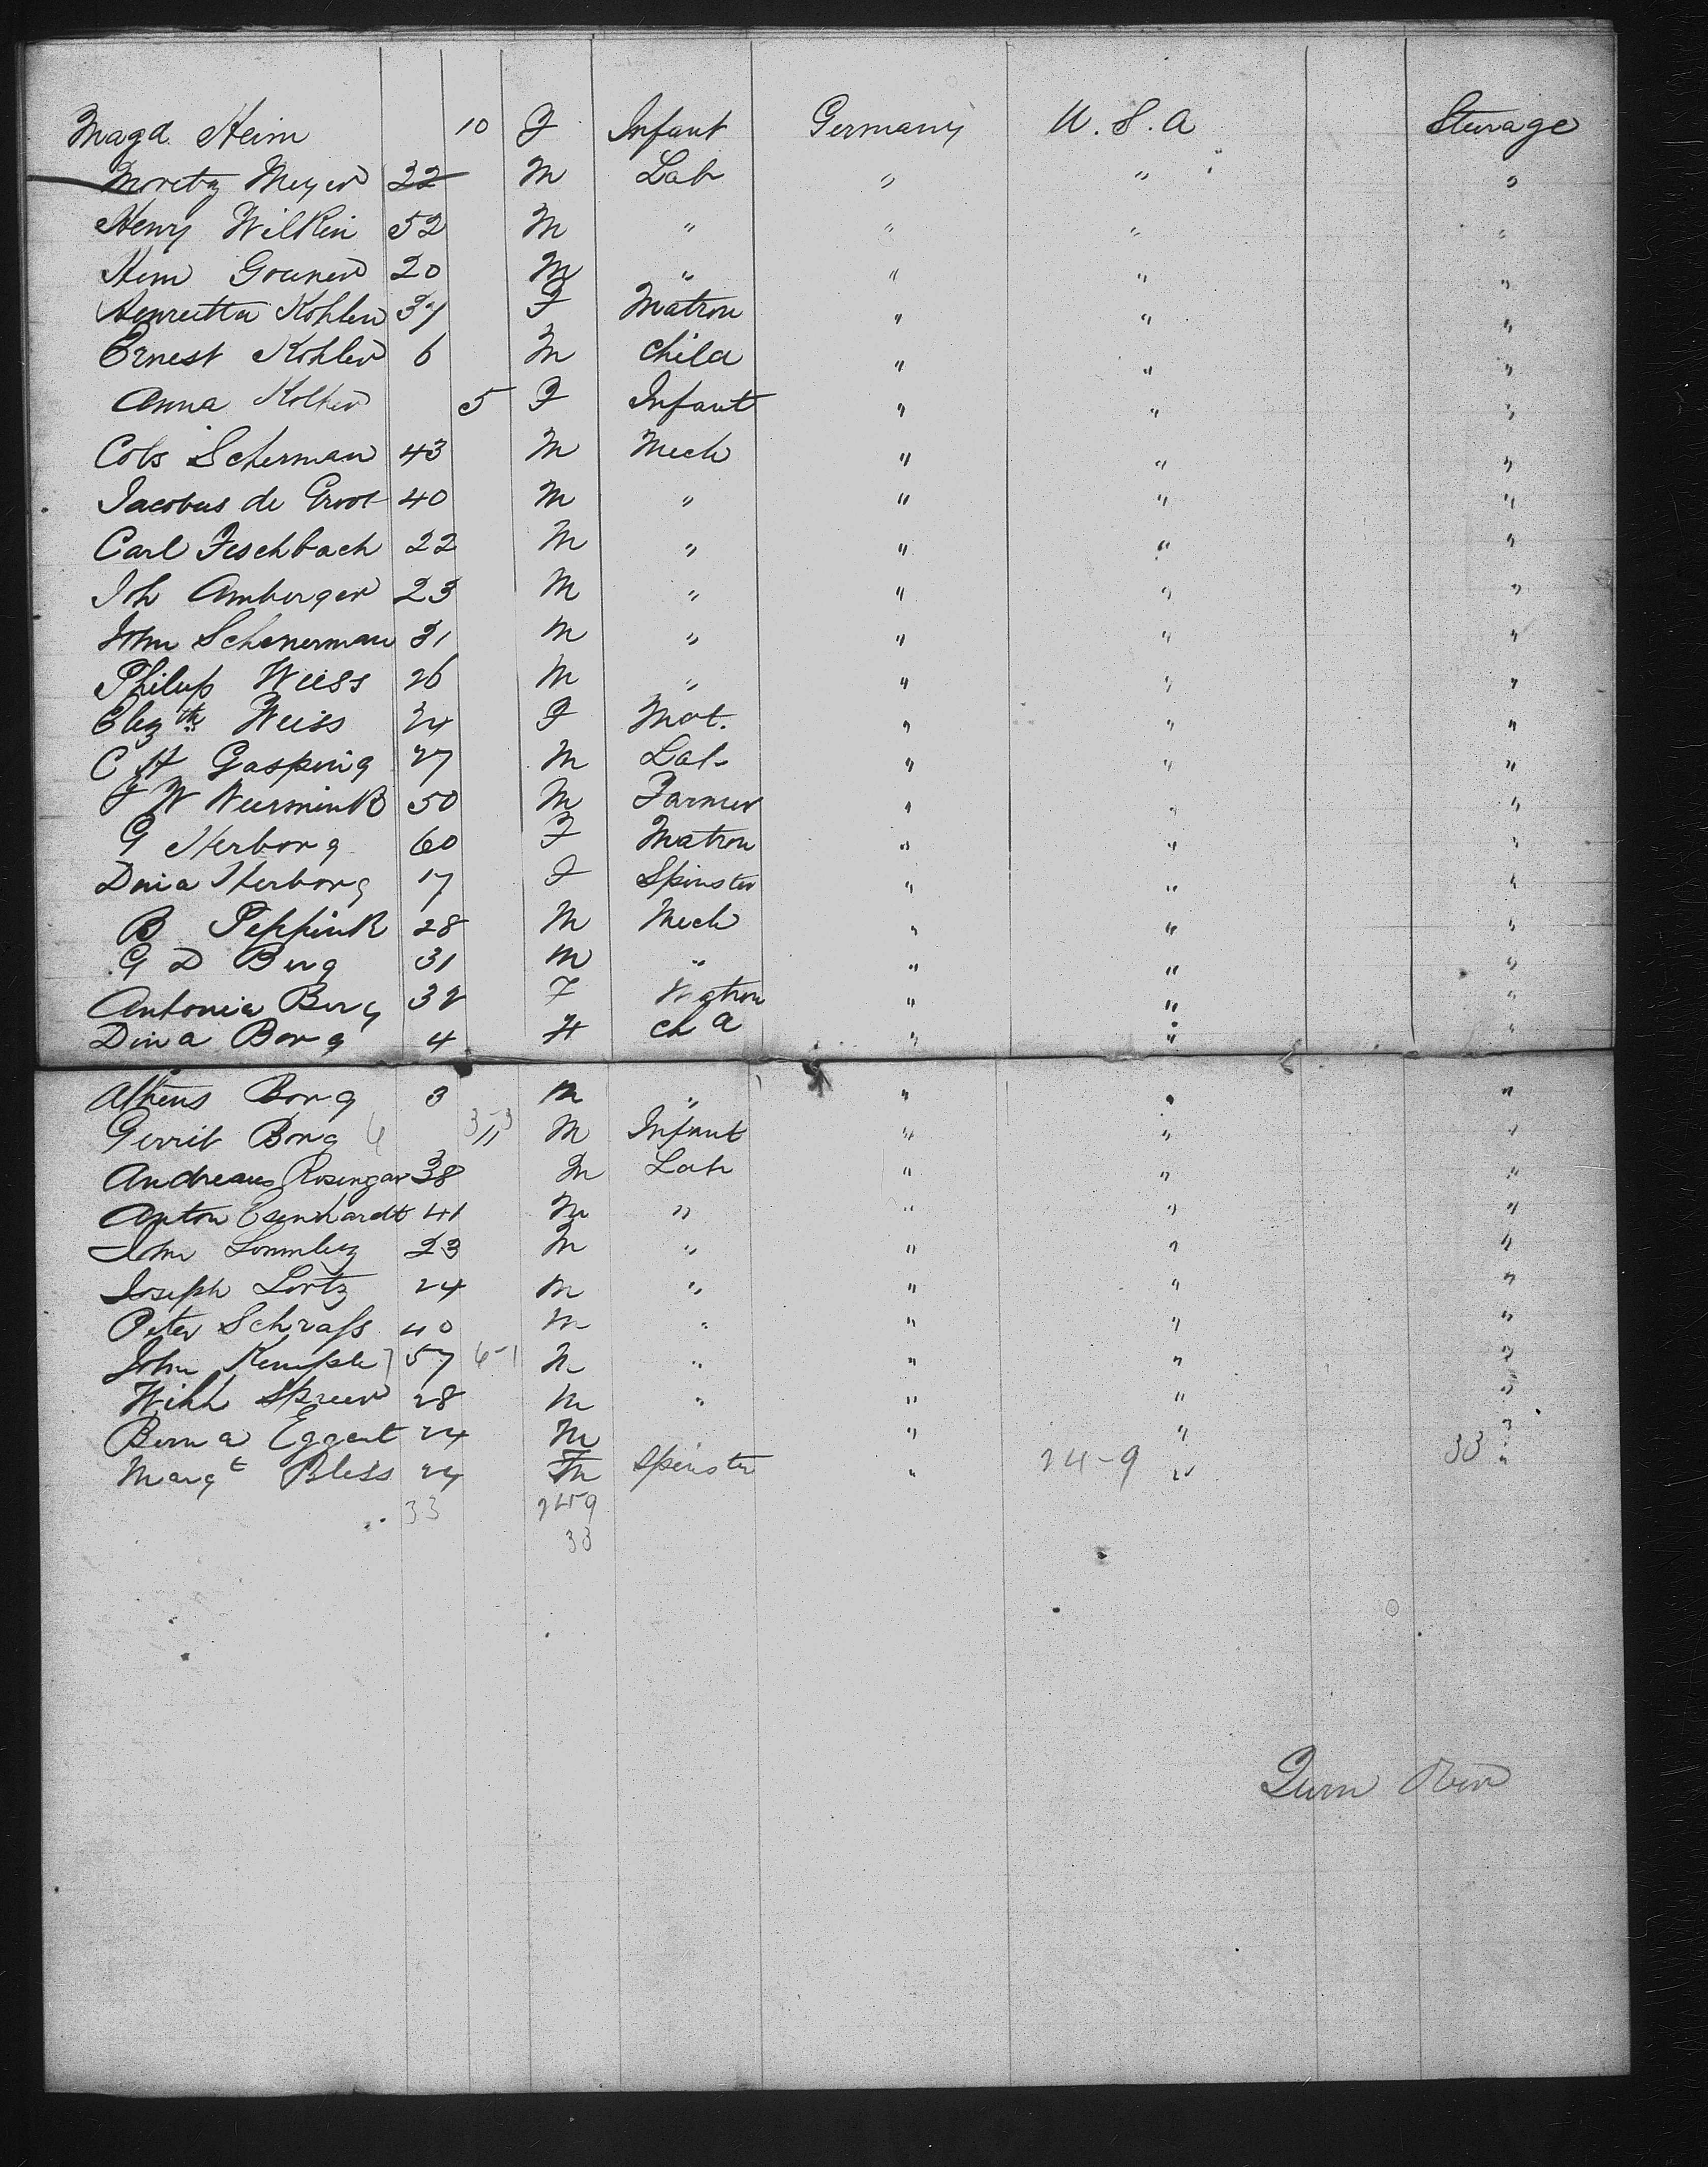 Magd Heim 10 F Infant Germany U.S.A Sterage
Moretz Meyer 22 M Lab " " "
Henry Wilkin 52 M " " " "
Herm Gruner 20 M " " " "
Henretta Kohler 37 F Matron " " "
Ernest Kohler 6 M Child " " "
Anna Kolher 5 F Infant " " "
Cobs Scherman 43 M Mech " " "
Jacobus de Groot 40 M " " " "
Carl Fischbach 22 M " " " "
Joh Amberger 23 M " " " "
John Schenerman 31 M " " " "
Philip Weiss 26 M " " " "
Elizth Weiss 24 F Mat. " " "
C H Gasping 27 M Lab " " "
F W Weermink 50 M Farmer " " "
G Herborg 60 F Matron " " "
Dina Herborg 17 F Spinster " " "
B Peppink 28 M Mech " " "
G D Berg 31 M " " " "
Antonia Berg 32 F Matron " " "
Dina Borg 4 F Chd " " "
Athens Borg 3 M " " " "
Gerrit Borg 11 M Infant " " "
Andreaus Rosengar 38 M Lab " " "
Anton Esenhardt 41 M " " " "
John 23 M " " " "
Joseph Lortz 24 M " " " "
Peter Schrass 40 M " " " "
John Kemple 57 6-1 M " " " "
Wilh Spreer 28 M " " " "
Berna Eggert 24 M " " "
Margt Bless 24 F Spinster " 24-9 " 33 "
33 24-9
33
Turn Over